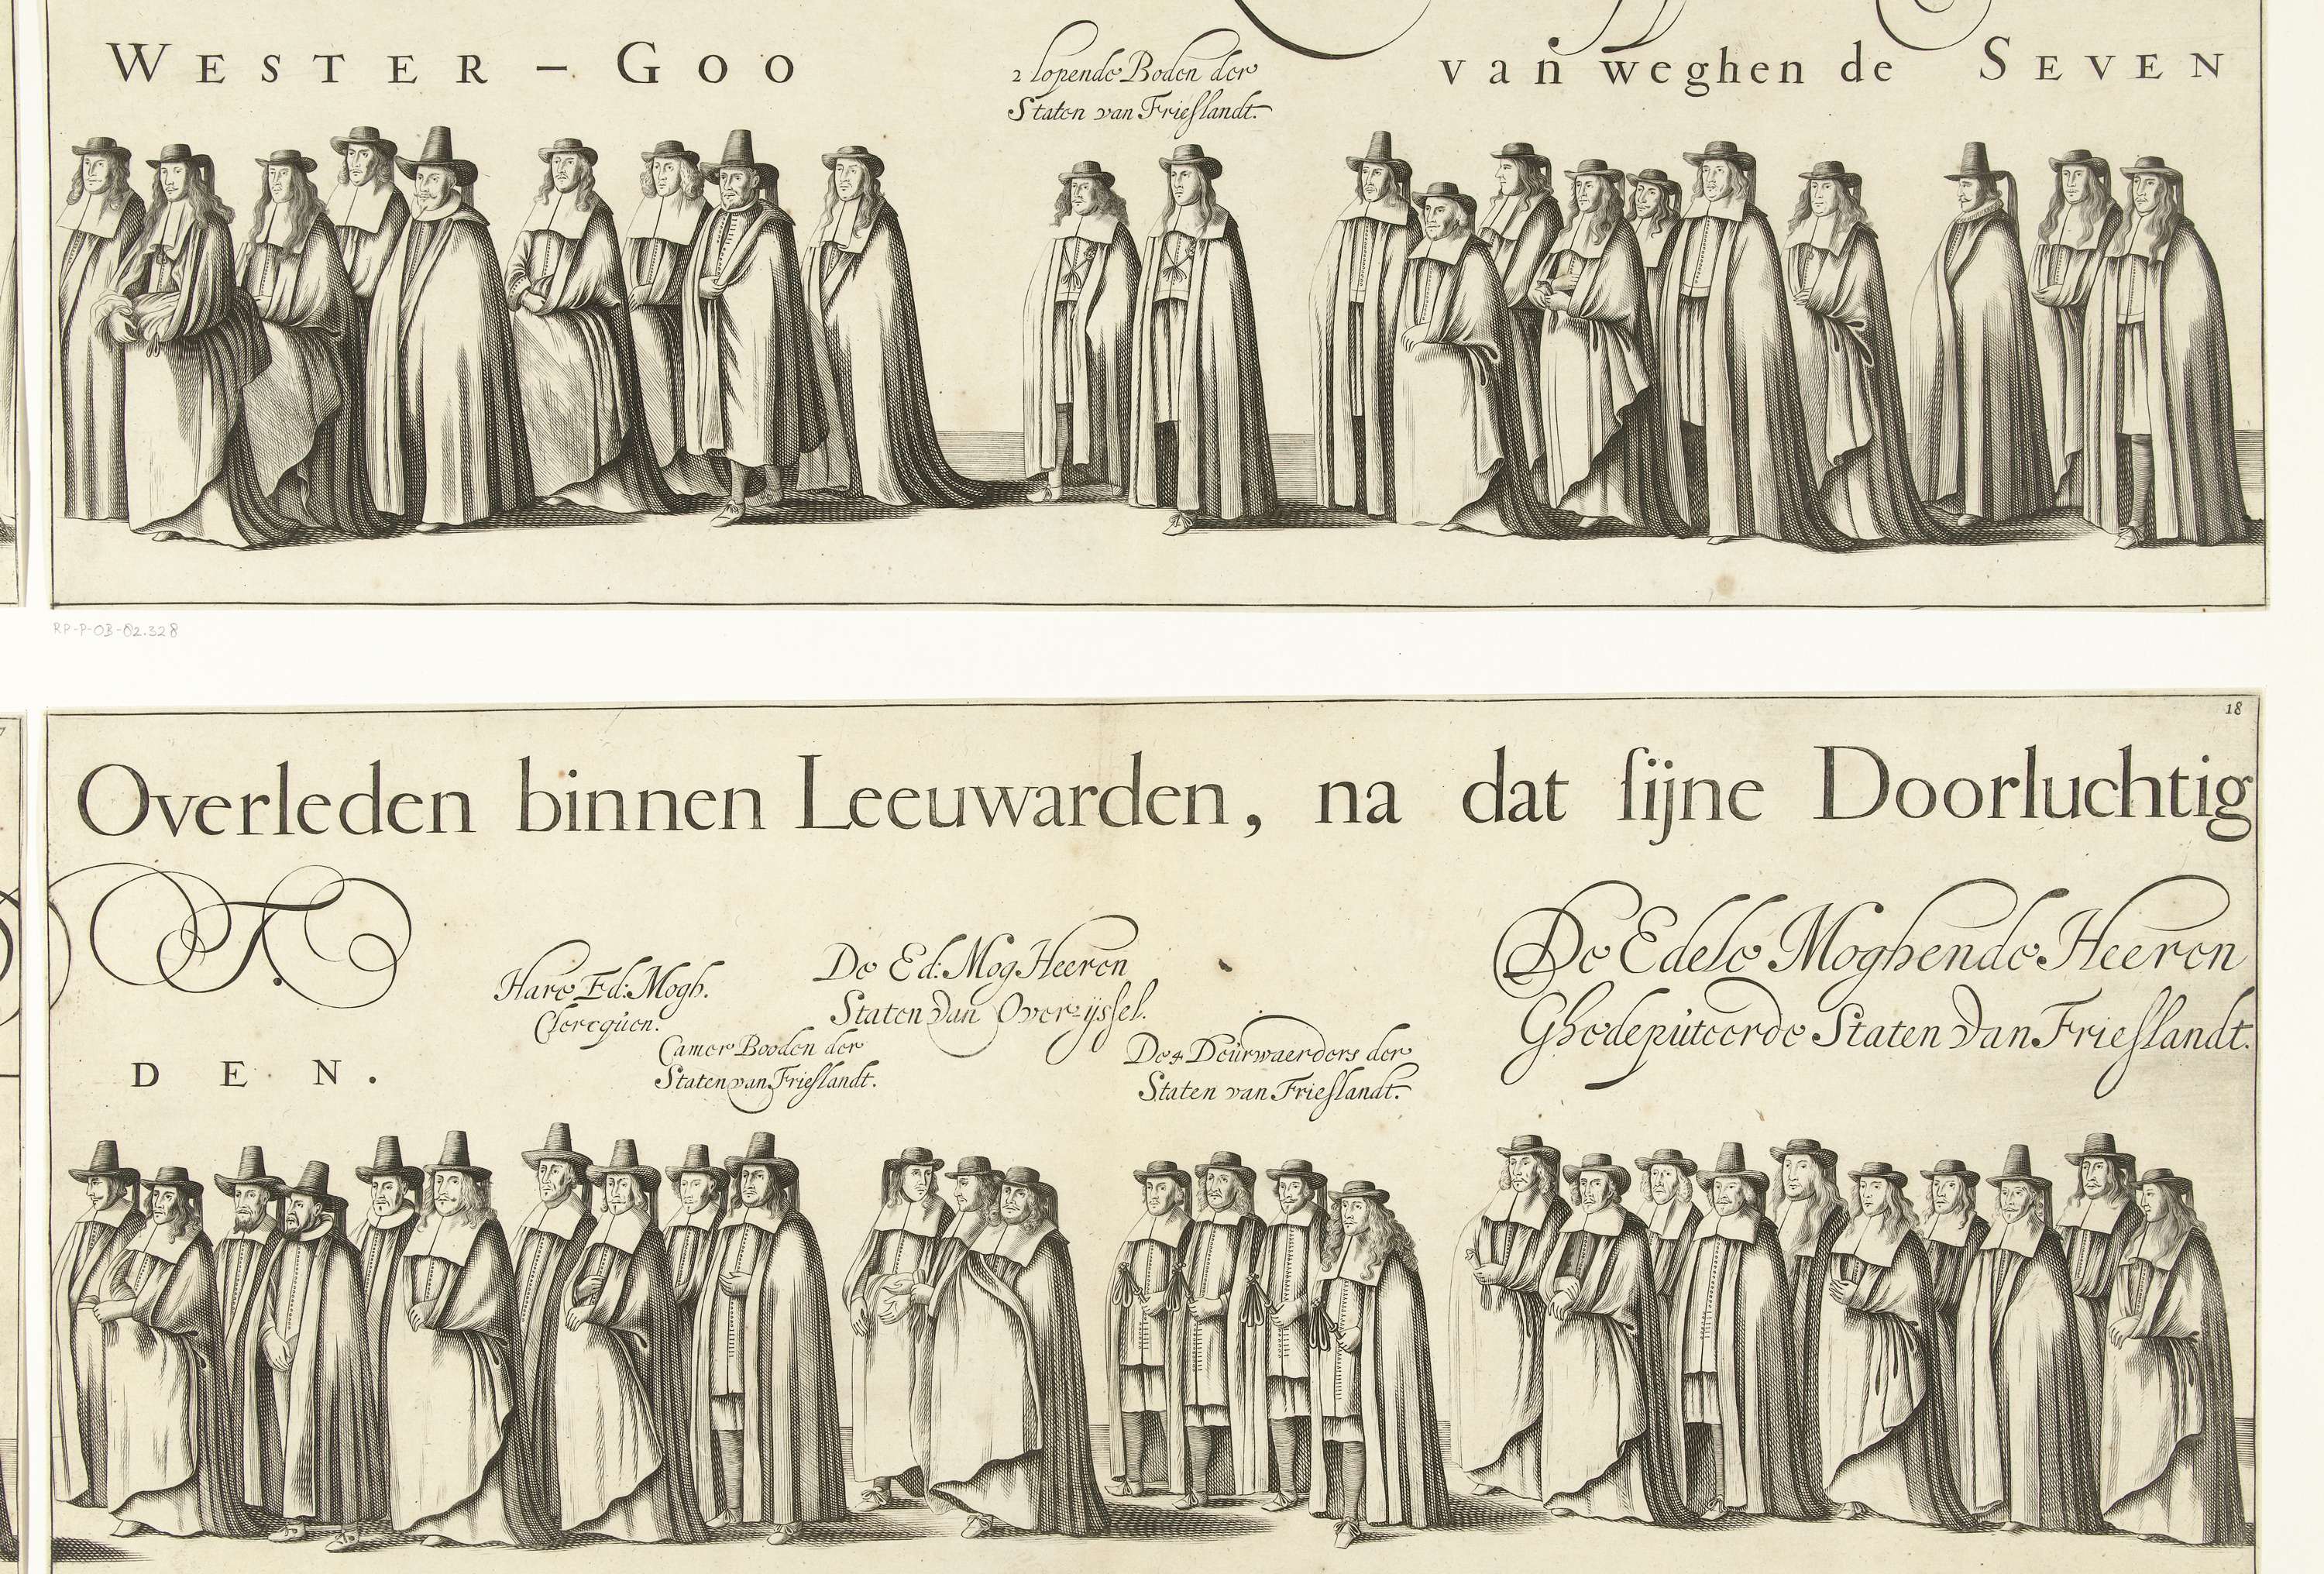 WESTER-GOO
2 lopende Boden der
Staten van Frieſlandt.
van weghen de SEVEN
RP-P-OB-82.328
18
Overleden binnen Leeuwarden, na dat ſijne Doorluchtig
T.
DEN.
Hare Ed: Mogh.
Clercquen.
Camer Booden der
Staten van Frieſlandt.
De Ed: Mog Heeren
Staten van Over-ijssel.
De 4 Deurwaerders der
Staten van Frieſlandt.
De Edele Moghende Heeren
Ghedeputeerde Staten van Frieſlandt.